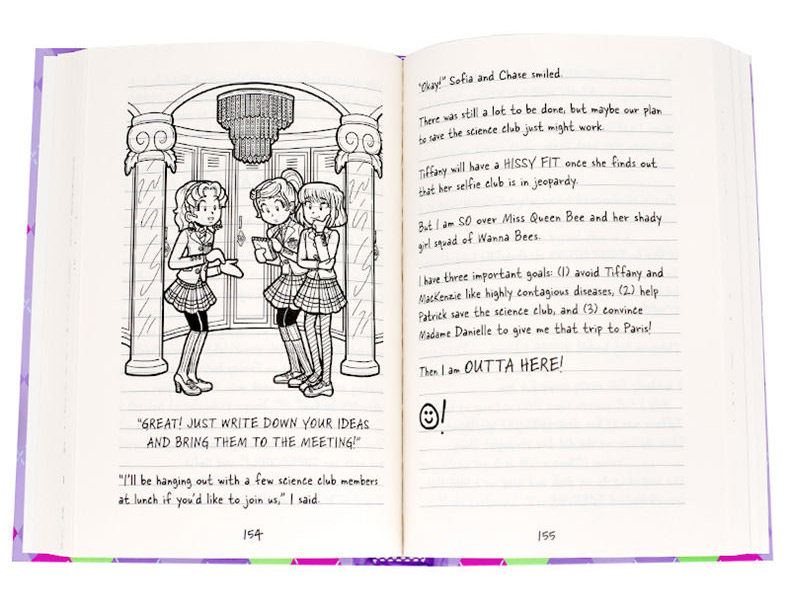 "GREAT! JUST WRITE DOWN YOUR IDEAS
AND BRING THEM TO THE MEETING!"
"I'll be hanging out with a few science club members
at lunch if you'd like to join us," I said.
154
"Okay!" Sofia and Chase smiled.
There was still a lot to be done, but maybe our plan
to save the science club just might work.
Tiffany will have a HISSY FIT once she finds out
that her selfie club is in jeopardy.
But I am SO over Miss Queen Bee and her shady
girl squad of Wanna Bees.
I have three important goals: (1) avoid Tiffany and
MacKenzie like highly contagious diseases, (2) help
Patrick save the science club, and (3) convince
Madame Danielle to give me that trip to Paris!
Then I am OUTTA HERE!
!
155